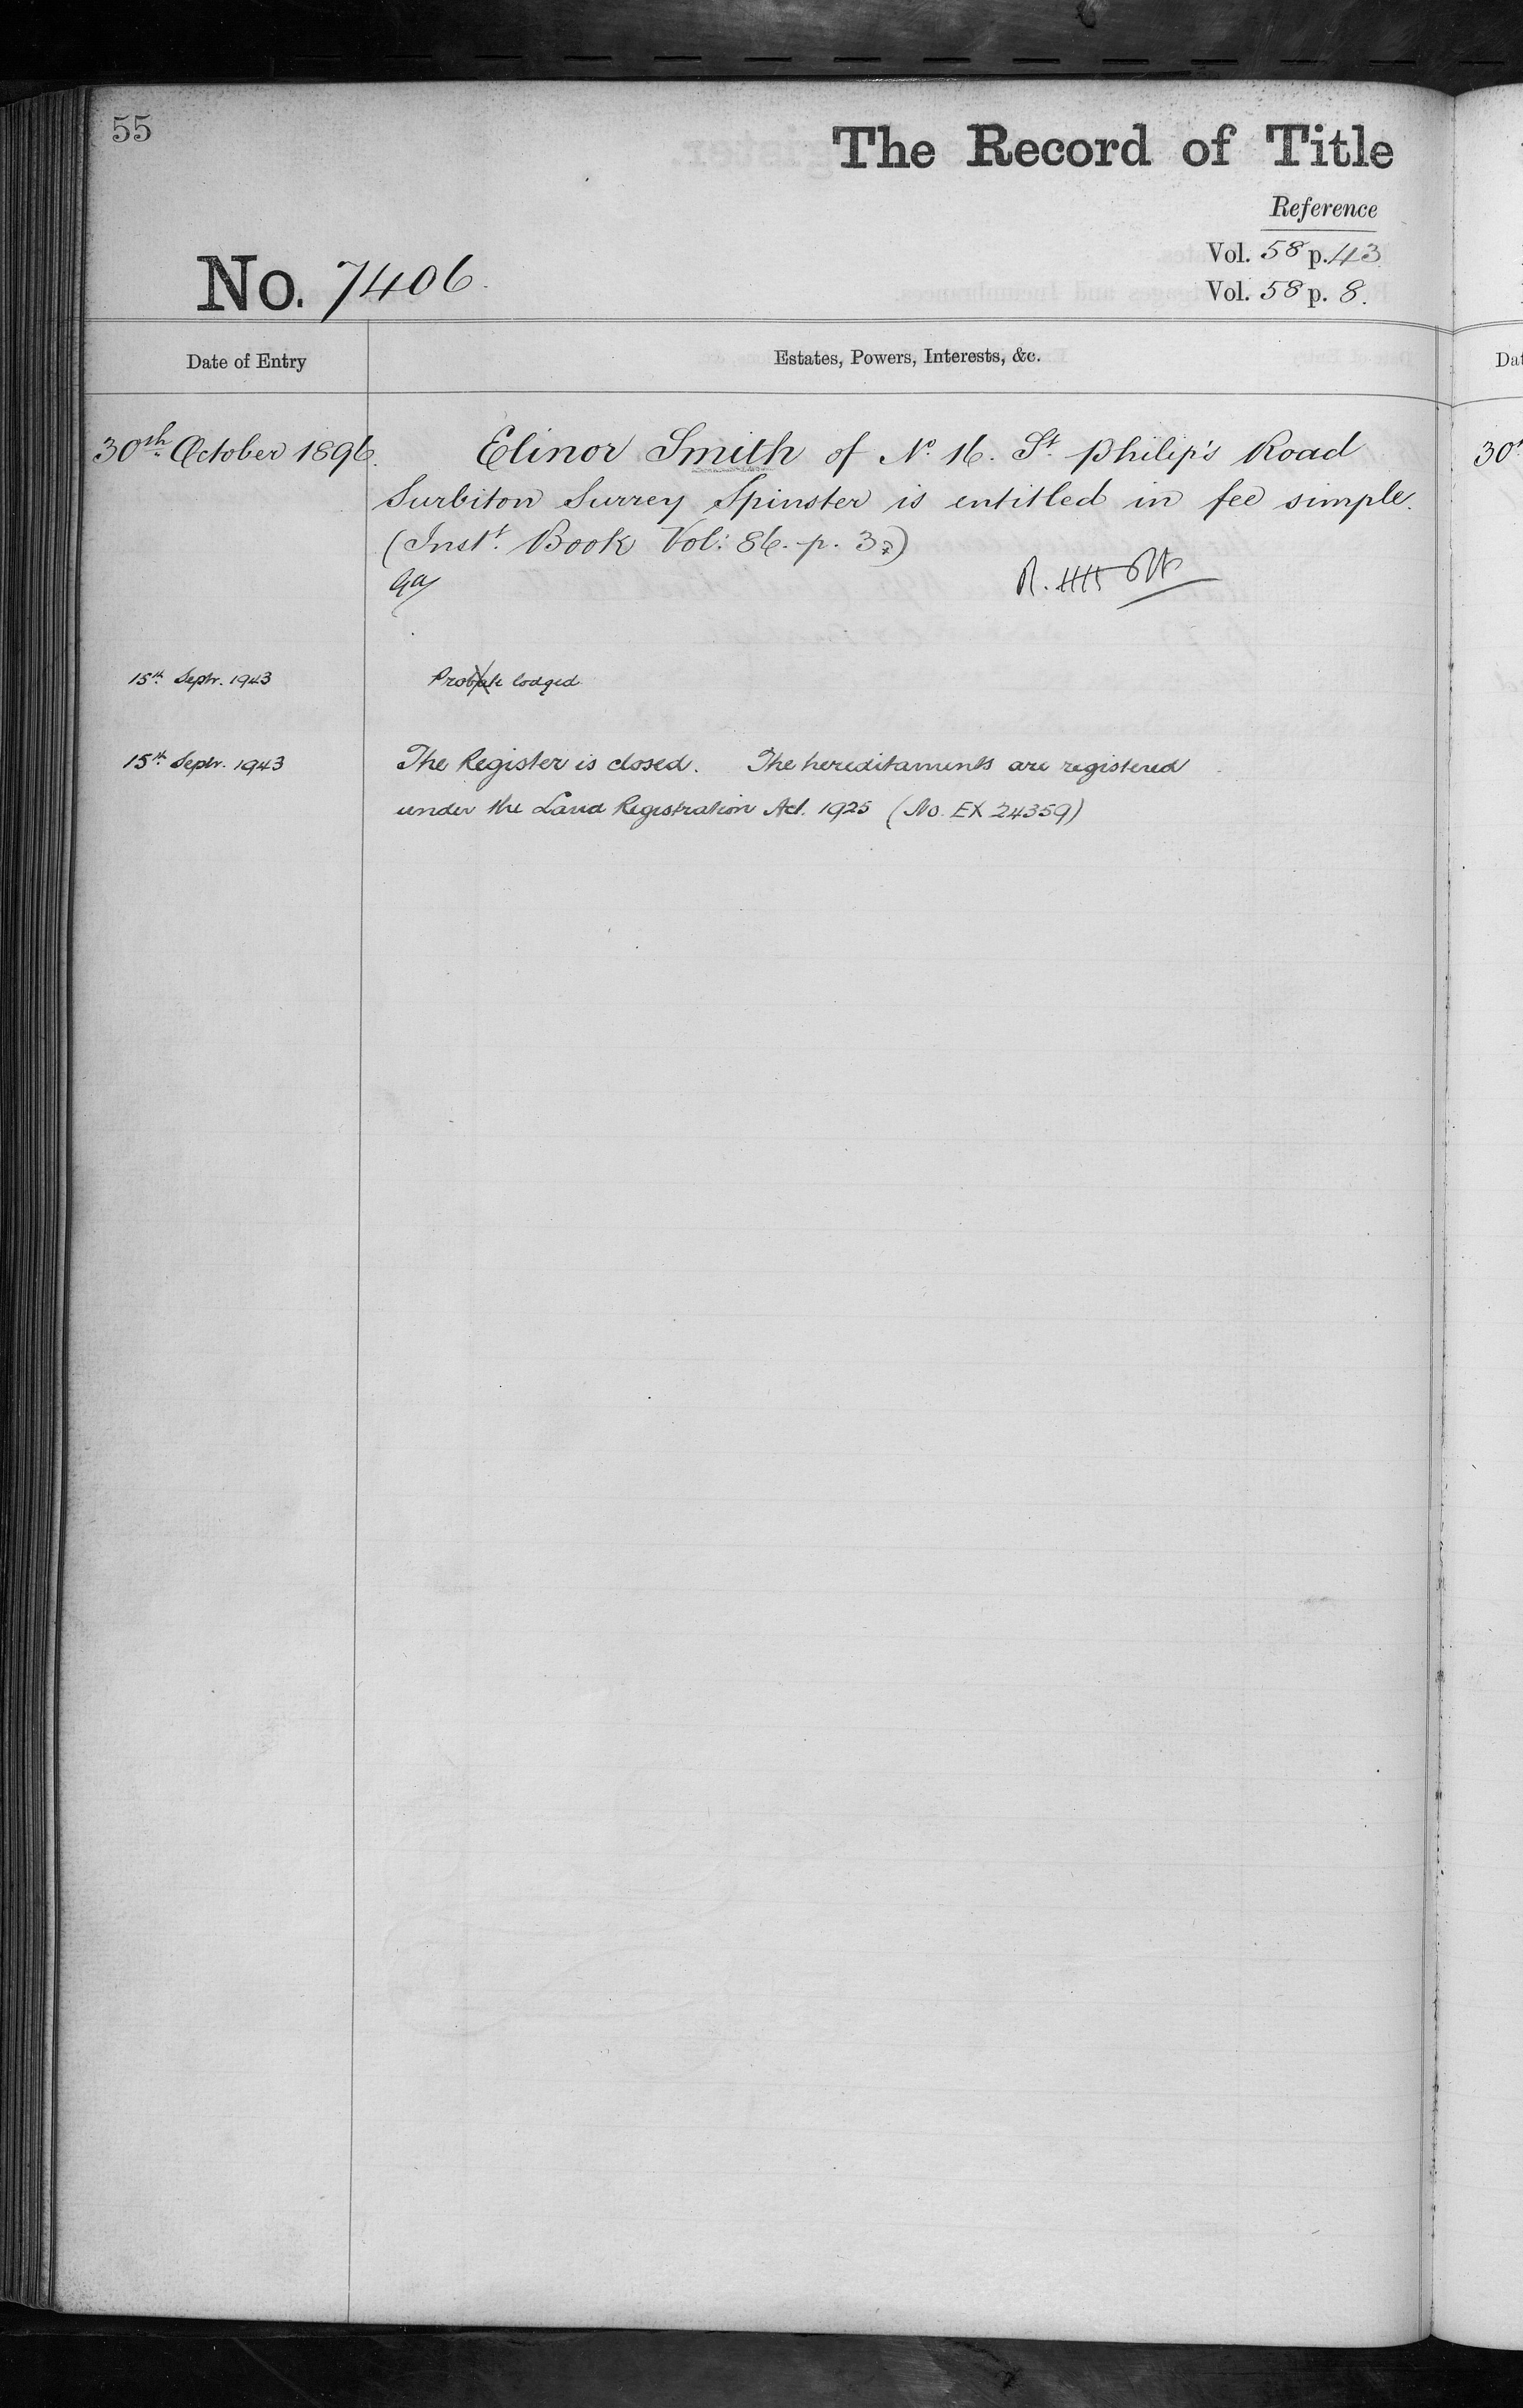 55
The Record of Title
Reference
Vol. 58 p. 43
Vol. 58 p. 8.
No. 7406.
Date of Entry
Estates, Powers, Interests, &c.
30th October 1896.
Elinor Smith of No. 16. St. Philip's Road
Surbiton Surrey Spinster is entitled in fee simple.
(Inst. Book Vol: 86. p. 37)
15th Septr. 1943
Probate lodged
15th Septr. 1943
The Register is closed. The hereditaments are registered
under the Land Registration Act. 1925 (No. EX 24359)
Dat
30t